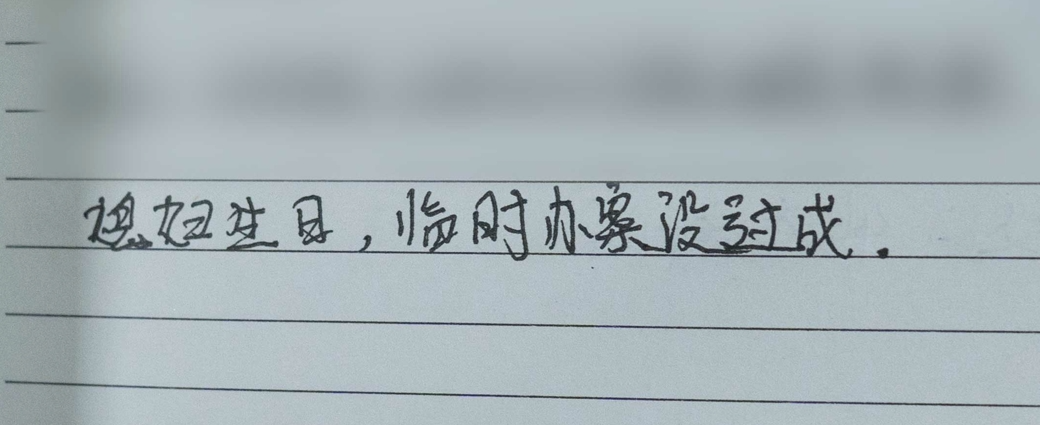 媳妇生日，临时办案没过成.